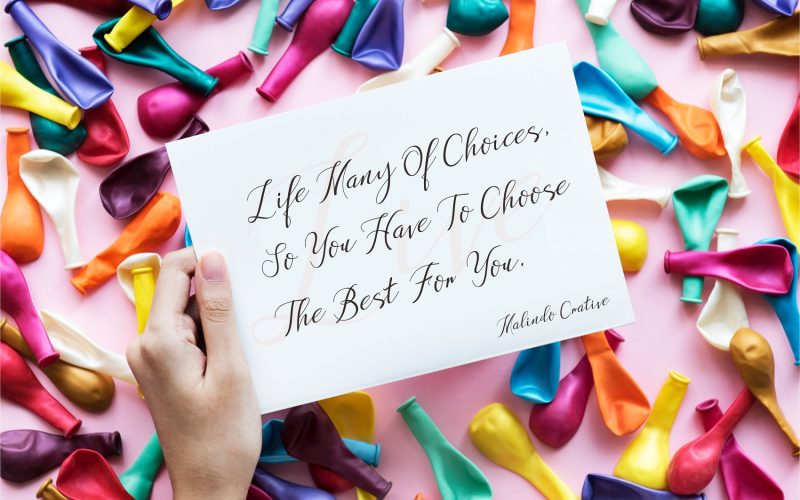 Life Many Of Choices,
So You Have To Choose
The Best For You.
Malindo Crative
Live